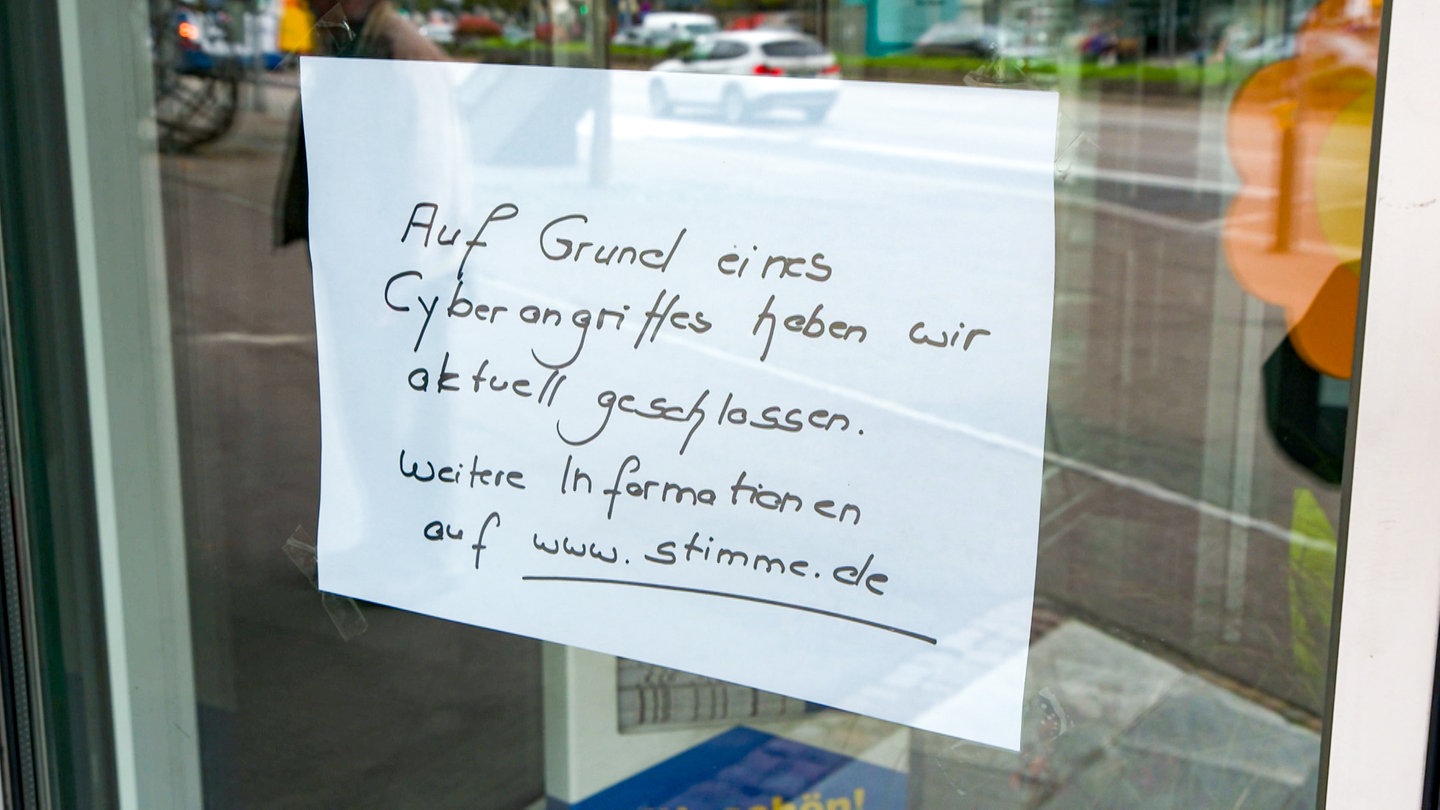 Auf Grund eines
Cyberangriffes haben wir
aktuell geschlossen.
Weitere Informationen
auf www.stimme.de
schön!